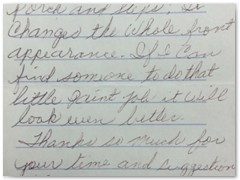 Porch and steps. It
changes the whole front
appearance. If I can
find someone to do that
little paint job it will
look even better.
Thanks so much for
your time and suggestion